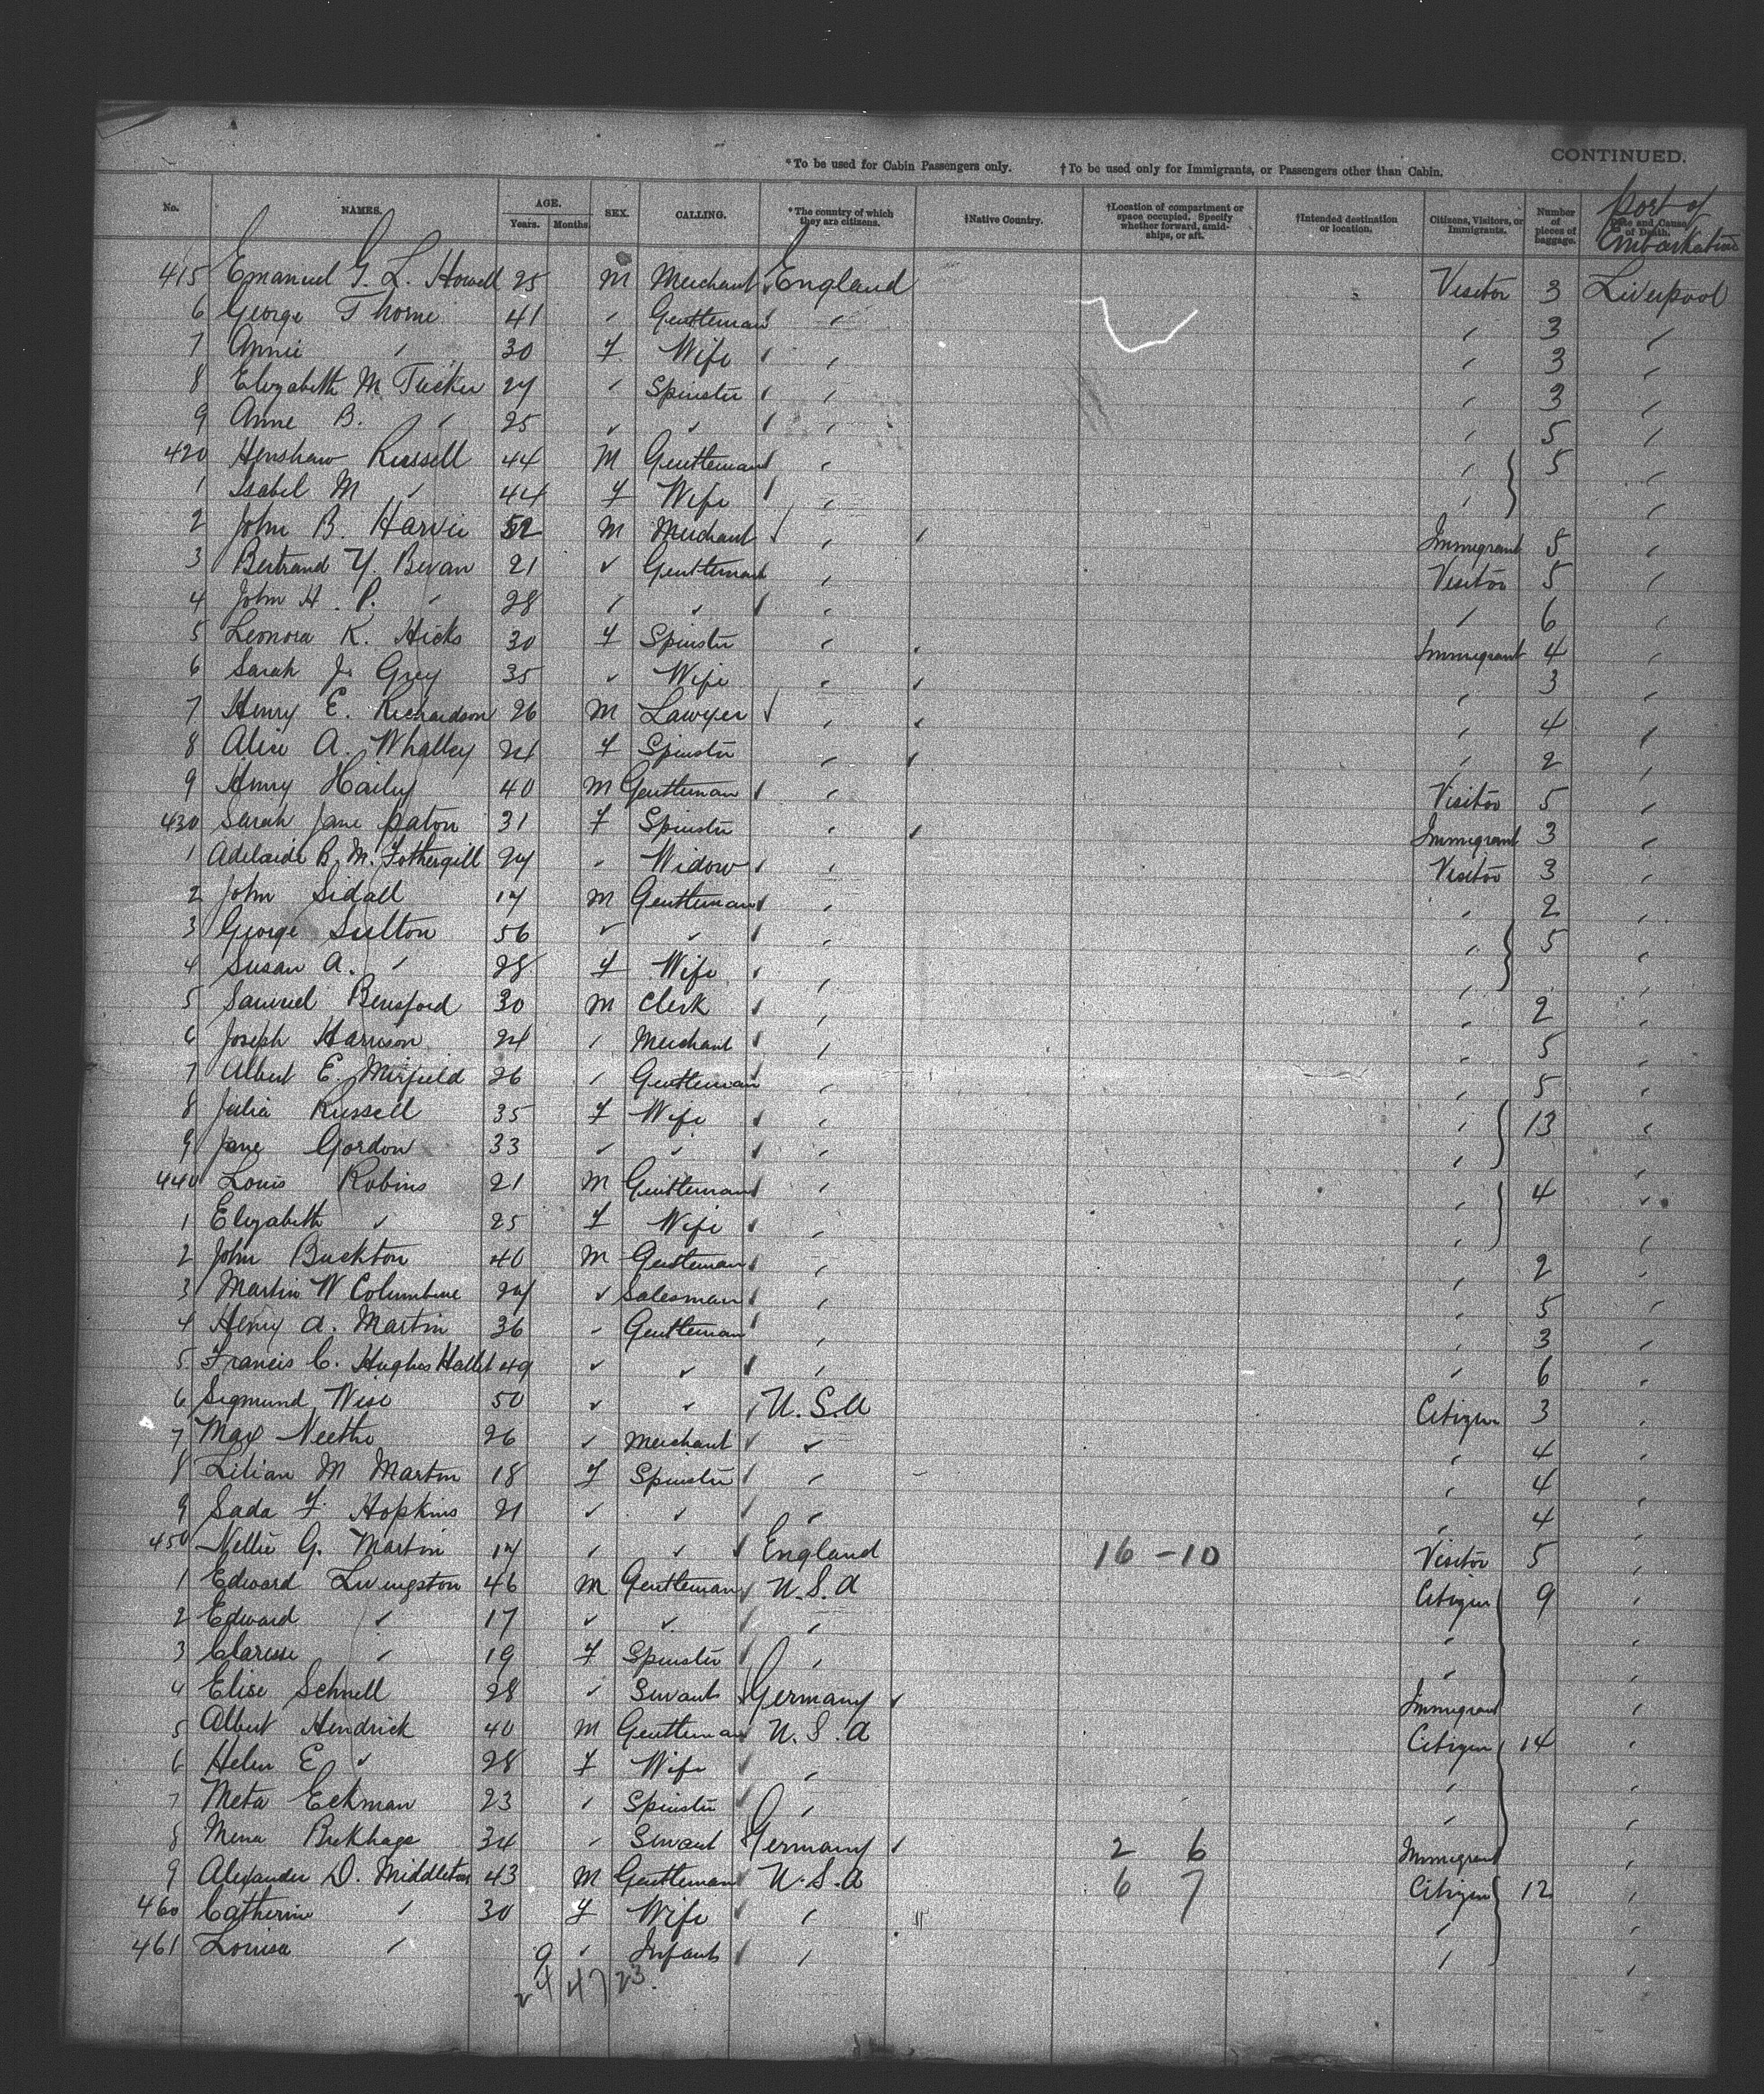 CONTINUED.
*To be used for Cabin Passengers only. †To be used only for Immigrants, or Passengers other than Cabin.
No. NAMES. AGE. Years. Months. SEX. CALLING. *The country of which they are citizens. †Native Country. †Location of compartment or space occupied. Specify whether forward, amidships, or aft. †Intended destination or location. Citizens, Visitors, or Immigrants. Number of pieces of baggage. Port of Embarkation
415 Emanuel G. L. Howell 25 M Merchant England Visitor 3 Liverpool
6 George Thorne 41 " Gentleman " " 3 "
7 Annie " 30 F Wife " " 3 "
8 Elizabeth M Tucker 27 " Spinster " " 3 "
9 Anne B. " 25 " " " " 5 "
420 Henshaw Russell 44 M Gentleman " " 5 "
1 Isabel M " 44 F Wife " " "
2 John B. Harvie 52 M Merchant " " Immigrant 5 "
3 Bertrand Y. Bevan 21 " Gentleman " Visitor 5 "
4 John H. P. " 28 " " " " 6 "
5 Leonora K. Hicks 30 F Spinster " " Immigrant 4 "
6 Sarah J. Grey 35 " Wife " " " 3 "
7 Henry E. Richardson 26 M Lawyer " " " 4 "
8 Alice A. Whalley 24 F Spinster " " " 2 "
9 Henry Haily 40 M Gentleman " Visitor 5 "
430 Sarah Jane Paton 31 F Spinster " " Immigrant 3 "
1 Adelaide B. M. Fothergill 27 " Widow " Visitor 3 "
2 John Sidall 17 M Gentleman " " 2 "
3 George Sutton 56 " " " " 5 "
4 Susan A. " 28 F Wife " " "
5 Samuel Beresford 30 M Clerk " " 2 "
6 Joseph Harrison 24 " Merchant " " 5 "
7 Albert E. Mirfield 26 " Gentleman " " 5 "
8 Julia Russell 35 F Wife " " 13 "
9 Jane Gordon 33 " " " " "
440 Louis Robins 21 M Gentleman " " 4 "
1 Elizabeth " 25 F Wife " " "
2 John Buckton 40 M Gentleman " " 2 "
3 Martin W Columbine 27 " Salesman " " 5 "
4 Henry A. Martin 36 " Gentleman " " 3 "
5 Francis C. Hughes Hallet 49 " " " " 6 "
6 Sigmund Wise 50 " " U.S.A Citizen 3 "
7 Max 26 " Merchant " " 4 "
8 Lilian M Martin 18 F Spinster " " 4 "
9 Sada F. Hopkins 21 " " " " 4 "
450 Nellie G. Martin 17 " " England 16 - 10 Visitor 5 "
1 Edward Livingston 46 M Gentleman U.S.A Citizen 9 "
2 Edward " 17 " " " " "
3 Clarisse " 19 F Spinster " " "
4 Elise Schnell 28 " Servant Germany " Immigrant "
5 Albert Hendrick 40 M Gentleman U.S.A Citizen 14 "
6 Helen E " 28 F Wife " " "
7 Meta Eckman 23 " Spinster " " "
8 Mena 34 " Servant Germany " 2 6 Immigrant "
9 Alexander D. Middleton 43 M Gentleman U.S.A 6 7 Citizen 12 "
460 Catherine " 30 F Wife " " "
461 Louisa " 9 " Infant " " "
24 47 23.